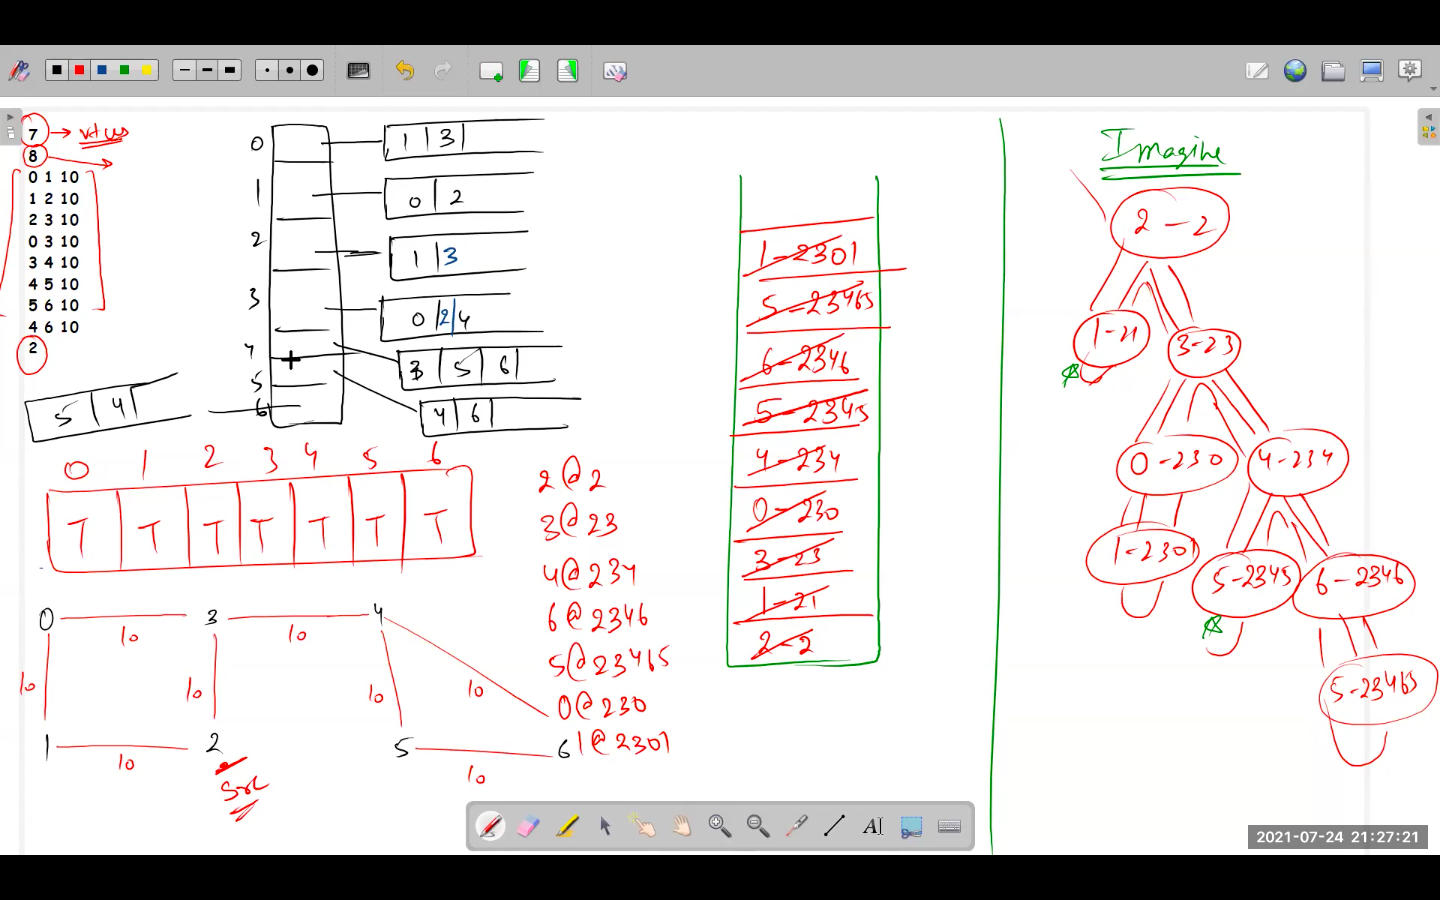 7 → vtces
8 →
0 1 10
1 2 10
2 3 10
0 3 10
3 4 10
4 5 10
5 6 10
4 6 10
2
0 1 3
1 0 2
2 1 3
3 0 2 4
4 3 5 6
5 4 6
6 5 4
0 1 2 3 4 5 6
T T T T T T T
0 10 3 10 4
10 10 10 10
1 10 2 5 10 6
Src
2@2
3@23
4@234
6@2346
5@23465
0@230
1@2301
1-2301
5-23465
6-2346
5-2345
4-234
0-230
3-23
1-21
2-2
Imagine
2-2
1-21 3-23
0-230 4-234
1-2301 5-2345 6-2346
5-23465
2021-07-24 21:27:21